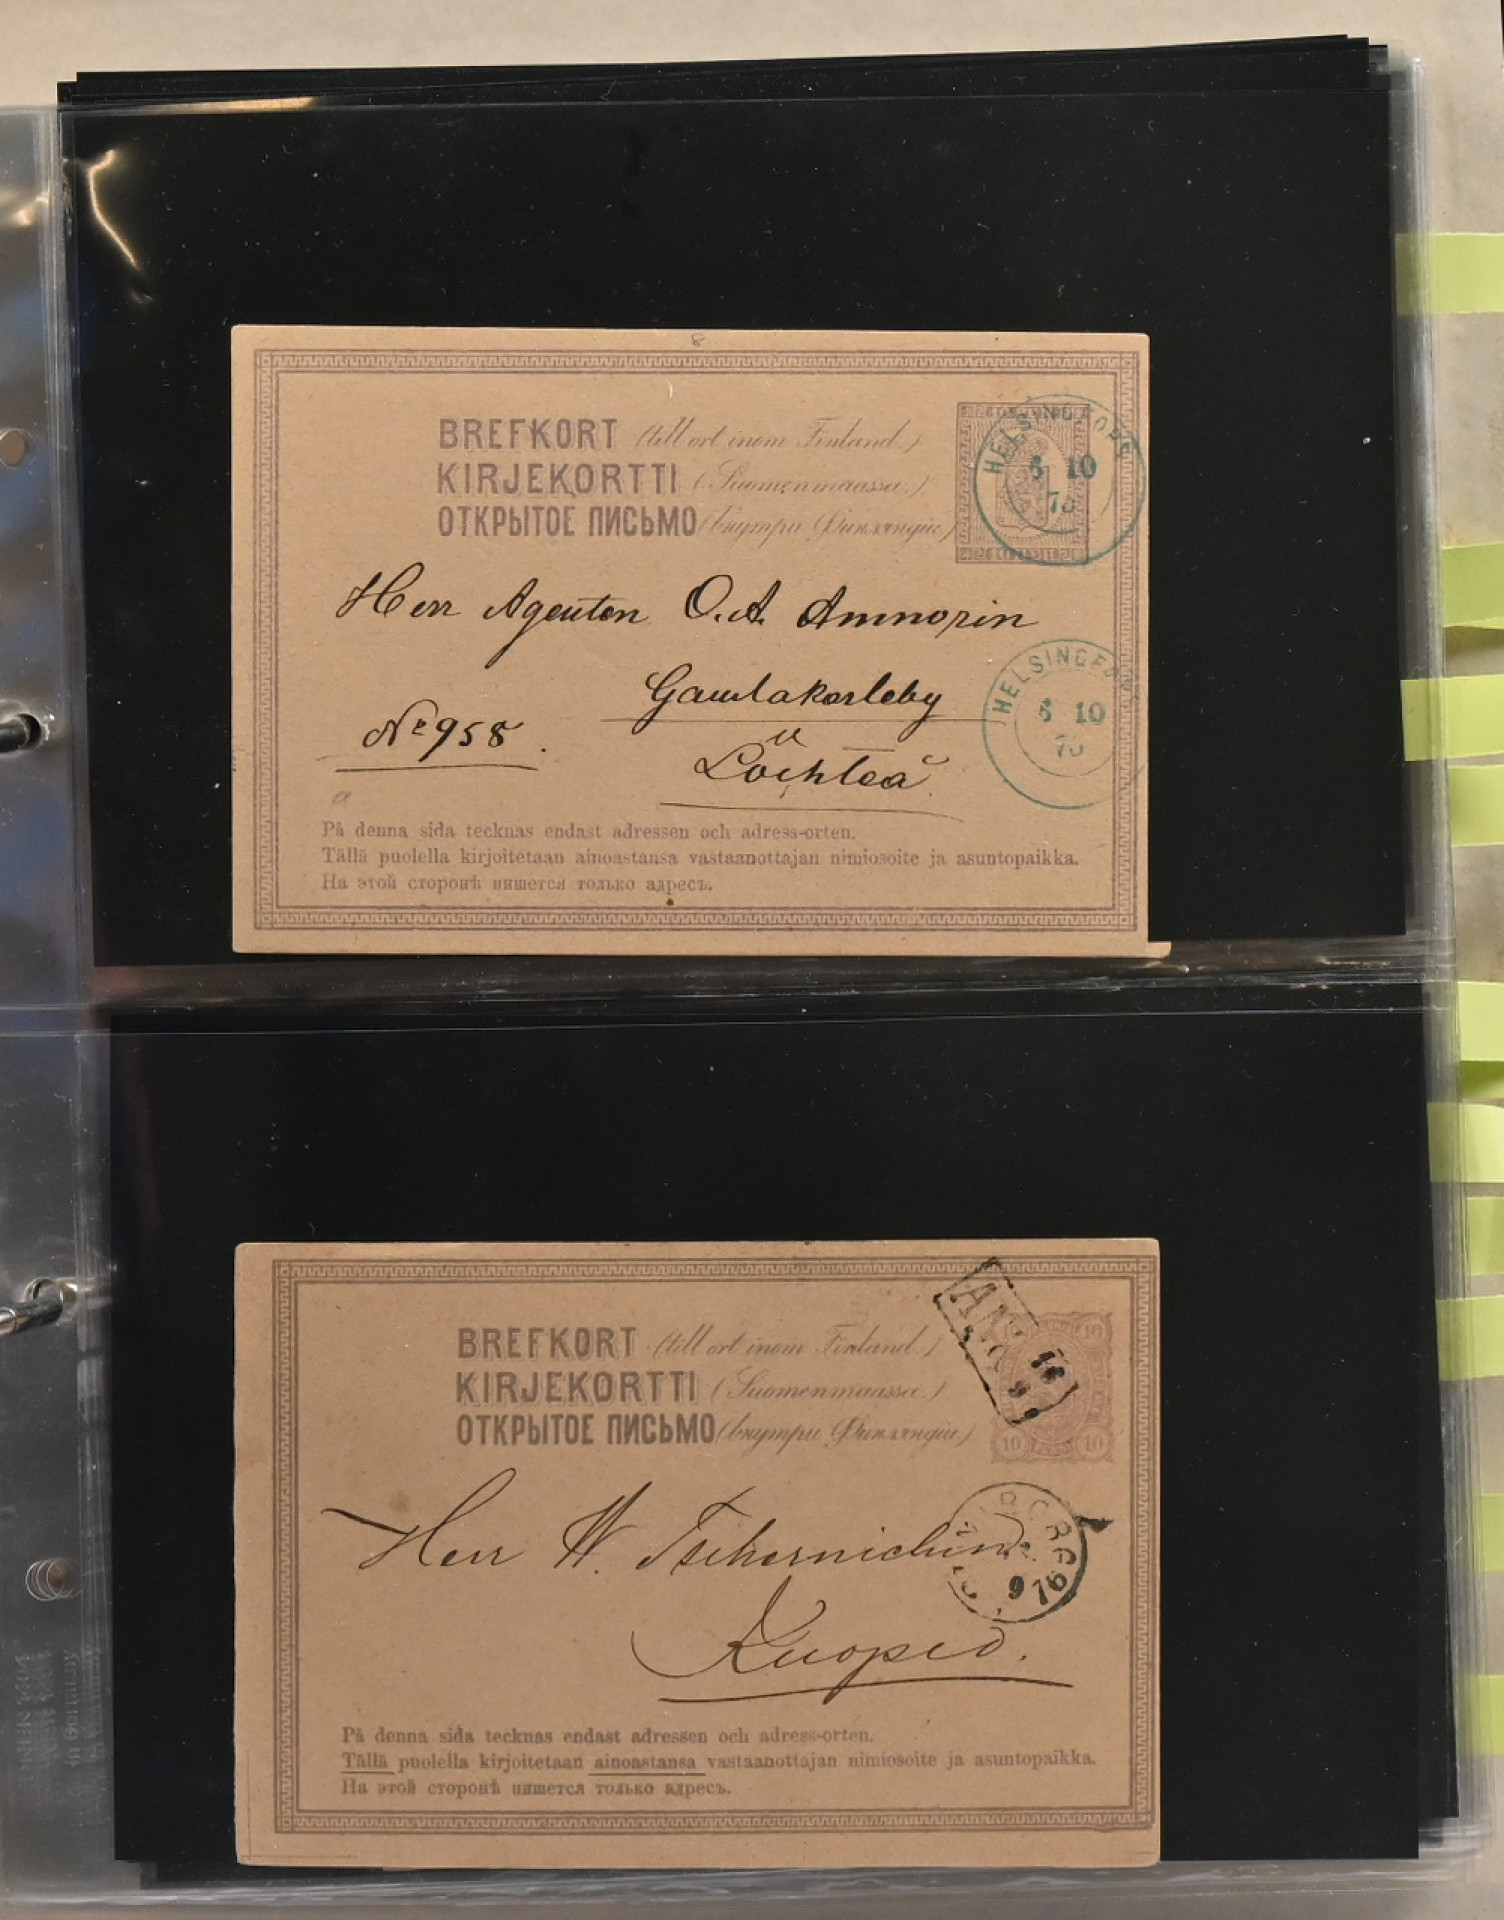 BREFKORT (till ort inom Finland.)
KIRJEKORTTI (Suomenmaassa.)
ОТКРЫТОЕ ПИСЬМО (внутри Финляндіи.)
HELSINGFORS
6 10
Herr Agenten O. A. Ammorin
Gamlakarleby
Nº 958.
Lochteå
HELSINGFORS
6 10
På denna sida tecknas endast adressen och adress-orten.
Tällä puolella kirjoitetaan ainoastansa vastaanottajan nimiosoite ja asuntopaikka.
На этой сторонѣ пишется только адресъ.
BREFKORT (till ort inom Finland.)
KIRJEKORTTI (Suomenmaassa.)
ОТКРЫТОЕ ПИСЬМО (внутри Финляндіи.)
ANK
16
9
10 10
10 10
Herr W. Tschernichin
WIBORG
9 76
Kuopio.
På denna sida tecknas endast adressen och adress-orten.
Tällä puolella kirjoitetaan ainoastansa vastaanottajan nimiosoite ja asuntopaikka.
На этой сторонѣ пишется только адресъ.